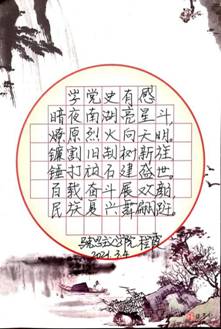 学党史有感
暗夜南湖亮星斗，
燎原烈火向天明。
镰割旧制树新
锤打顽石建盛世。
百载奋斗展欢
民族复兴舞翩
2021.3.4